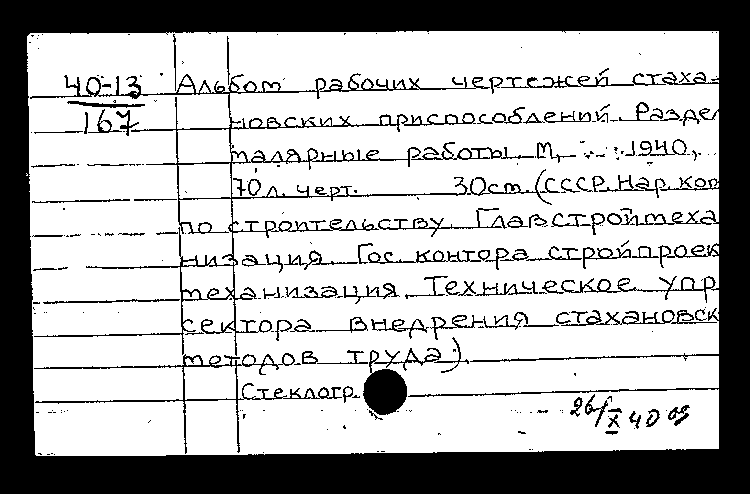 40-13 Альбом рабочих чертежей стаха-
167 новских приспособлений. Раздел
малярные работы. М., 1940,
70л. черт. 30см. (СССР. Нар. ком
по строительству. Главстроймеха
низация. Гос. контора стройпроек
механизация. Техническое упр
сектора внедрения стахановск
методов труда).
Стеклогр.
26/X 40